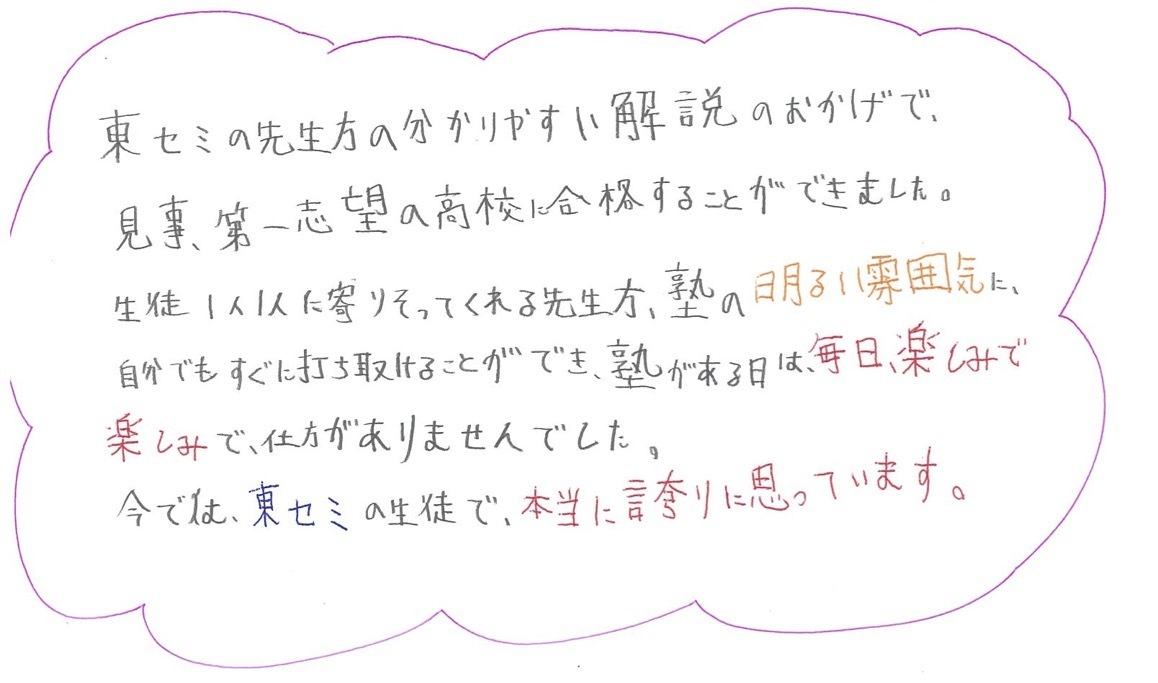 東セミの先生方の分かりやすい解説のおかげで、
見事、第一志望の高校に合格することができました。
生徒1人1人に寄りそってくれる先生方、塾の明るい雰囲気に、
自分でもすぐに打ち取けることができ、塾がある日は、毎日、楽しみで
楽しみで、仕方がありませんでした。
今では、東セミの生徒で、本当に誇りに思っています。